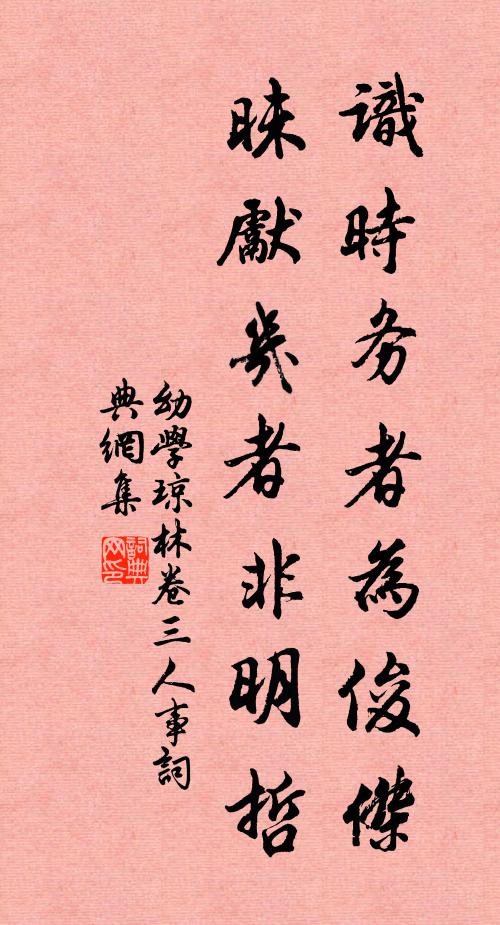 識時务者為俊傑
昧獻幾者非明哲
幼學琼林卷三人事詞
典網集
詞典
网印